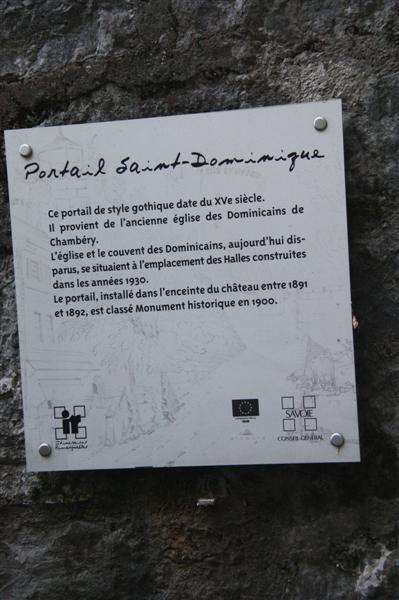 Portail Saint-Dominique
Ce portail de style gothique date du XVe siècle.
Il provient de l'ancienne église des Dominicains de
Chambéry.
L'église et le couvent des Dominicains, aujourd'hui dis-
parus, se situaient à l'emplacement des Halles construites
dans les années 1930.
Le portail, installé dans l'enceinte du château entre 1891
et 1892, est classé Monument historique en 1900.
ir
SAVOIE
CONSEIL GÉNÉRAL